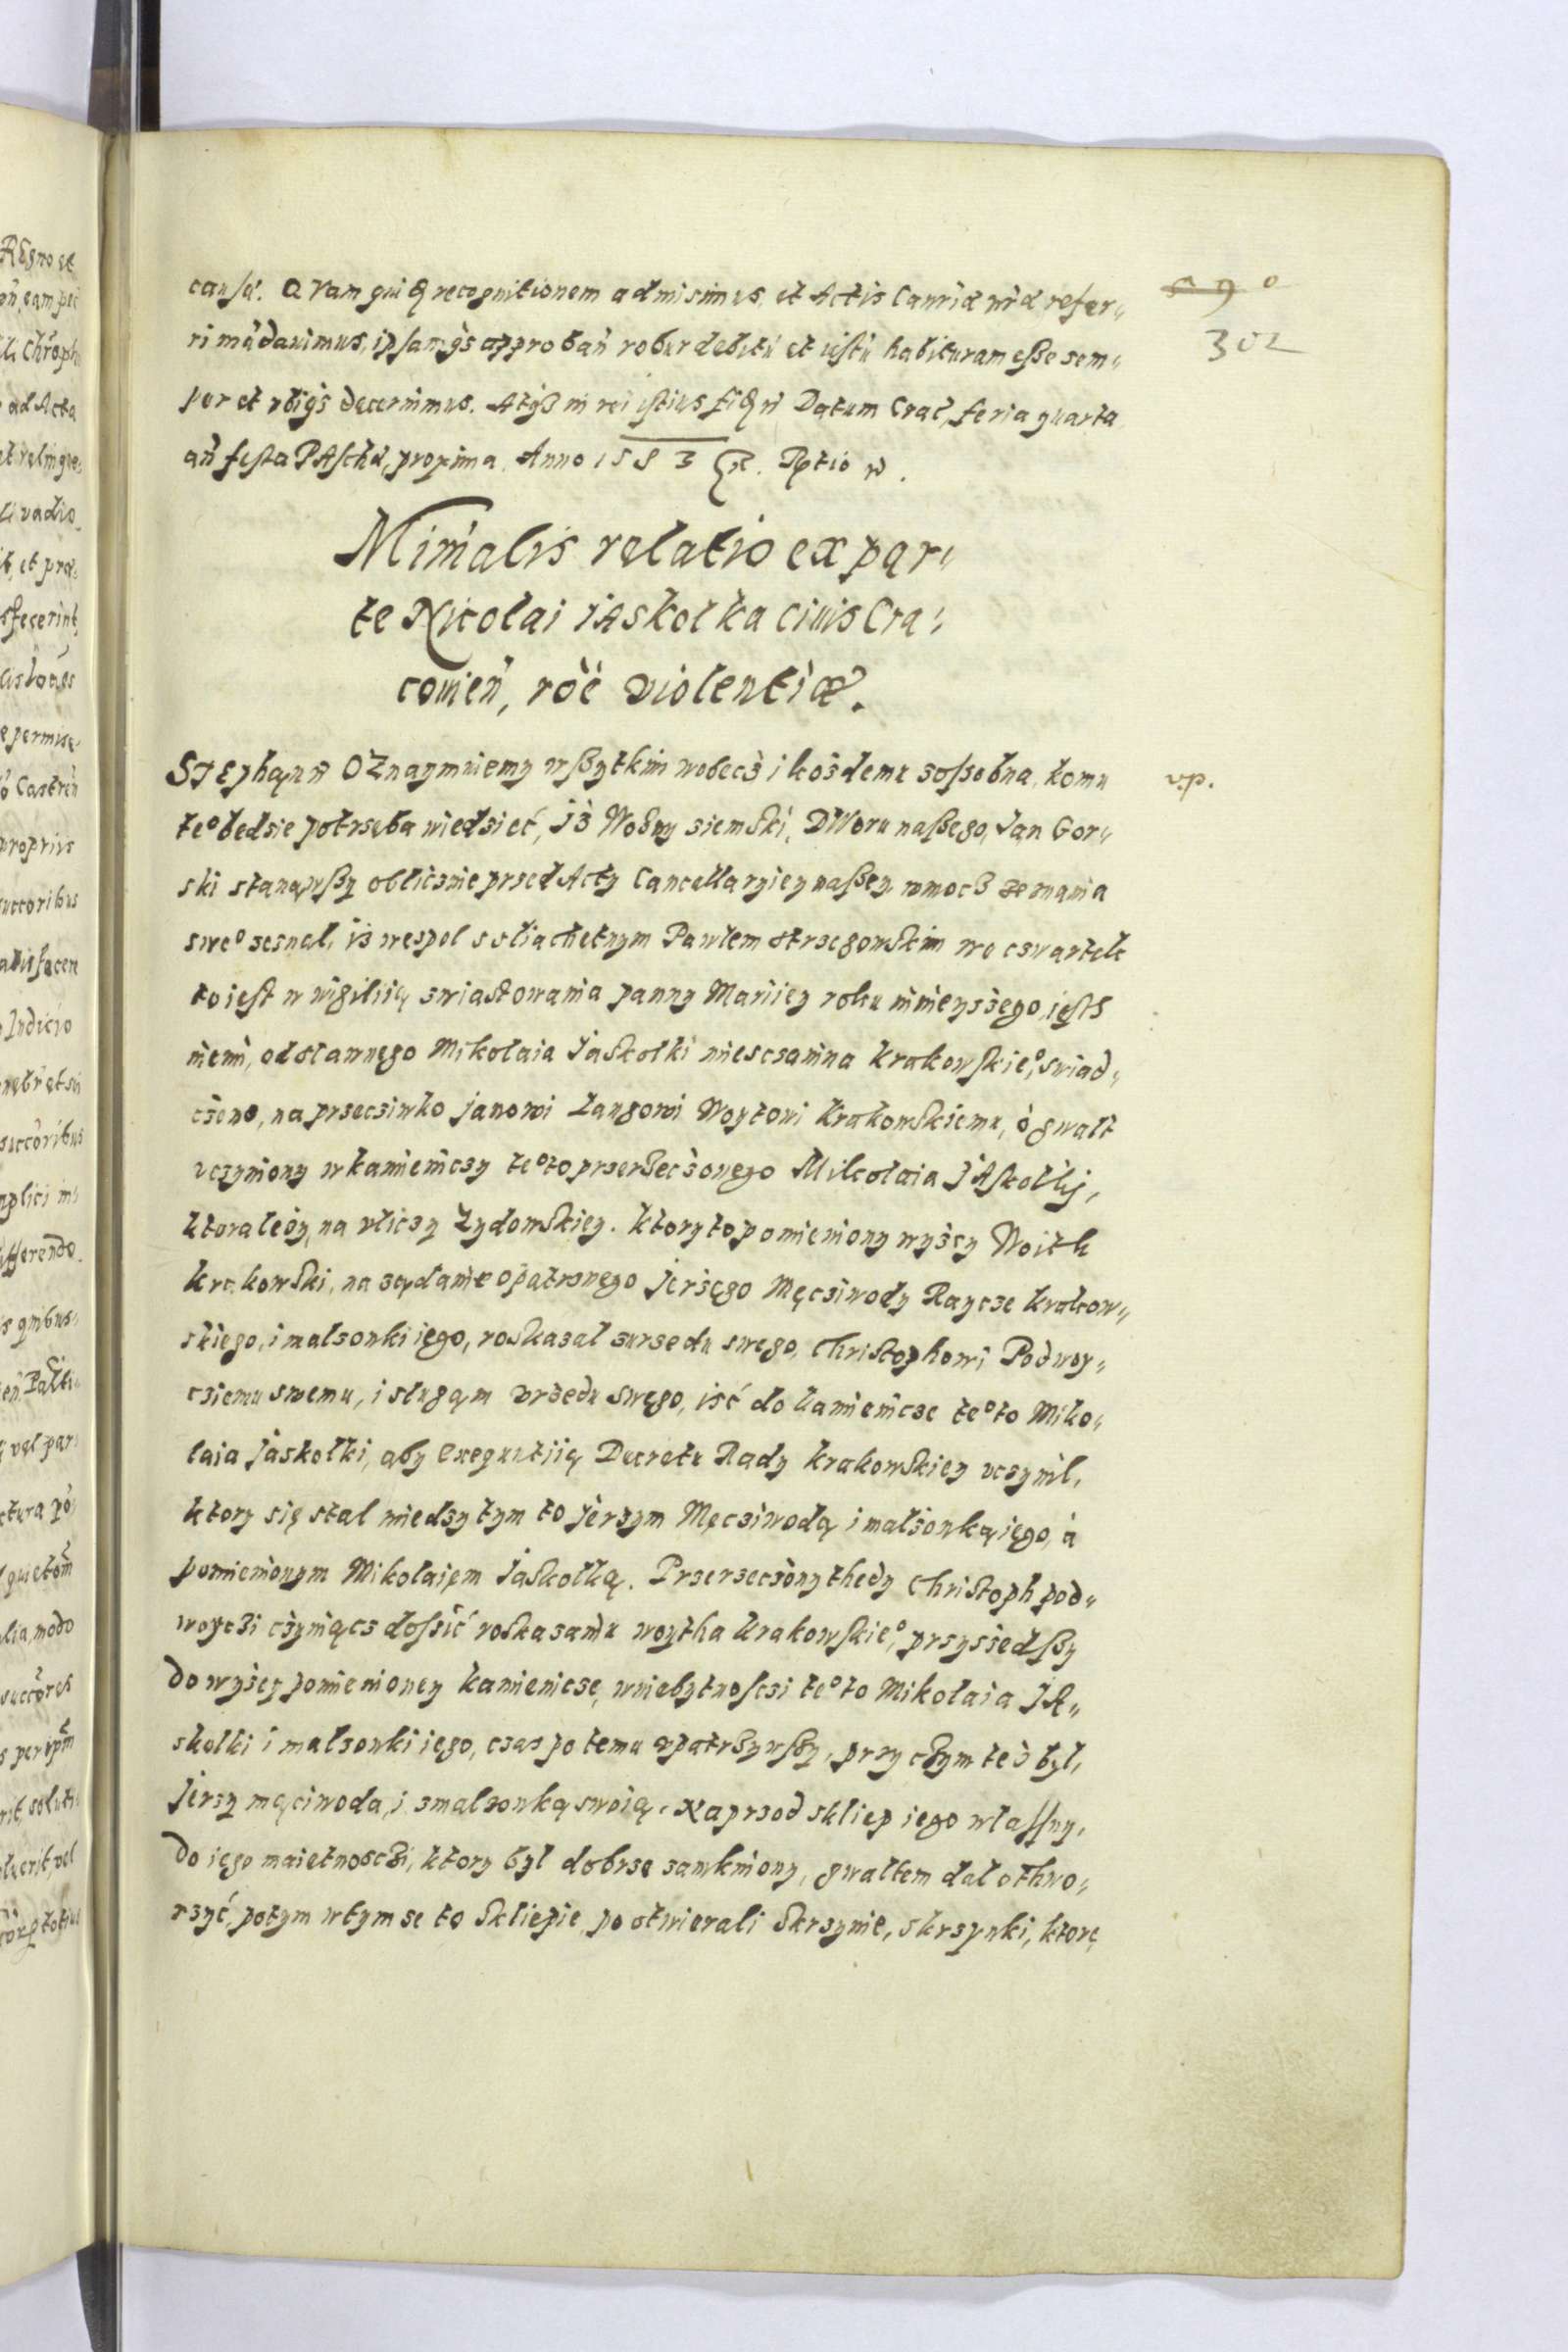 causa. Quam quidem recognitionem admisimus et Actis Canriæ nræ refer„
ri mādauimus, ipsamqs approbań robur debitū et iustū habituram eße sem„
per et vbiqs decernimus. Datum Crać feria quarta
ań festa PAschæ, proxima. Anno 1583
Minālis relatio ex par„
te Nicolai iAskolka Ciuis Cra„
couień, rōē violentiæ.
STEphanus OZnaymuiemy wßytkim wobecz i kożdemu zosobna, komu
teº bedzie potrzeba wiedzieć, Jż Wozny ziemski, DWoru naßego, Jan Gor„
ski stanąwßy oblicznie przed Acty Cancellaryiey naßey wmocz zeznania
sweº zeznal, iż wespol sslachetnym Pawlem Strzegowskim we czwartek
to iest w wigiliią zwiastowania panny Mariiey roku ninieyszego, iest
niemi, od slawnego Mikolaia Jaskolki miesczanina krakowskieº, swiad„
czeno, na przeciwko Janowi Langowi Woytowi krakowskiemu, o gwalt
vczyniony w kamieniczy teºto przerzeczonego Mikolaia JAskolkj,
ktora leży, na vliczy Zydowskiey. ktory to pomieniony wyżey Woith
krakowski, na ządanie opatrznego Jerzego Męcziwody Raycze krakow„
skiego, i malzonki iego, roskazal zurzedu swego, Christophowi Podwoy„
cziemu swemu, i slugąm vrzedu swego, iść do kamienicze teºto Miko„
laia Jaskolki, aby Exequutiią Decretu Rady krakowskiey vczynil,
ktory się stal miedzy tym to Jerzym Męcziwodą i malzonką iego, á
pomienionym Mikolaiem Jaskolką. Przerzeczony thedy Christoph pod„
woyczi czyniącz dossić roskazaniu woytha krakowskieº, przyszedßy
do wyżey pomienioney kamienicze, wniebytnosczi teºto Mikolaia JA„
skolki i malzonki iego, czas po temu vpatrzywßy, przy czym też byl,
Jerzy męciwoda, i zmalzonką swoią. Naprzod skliep iego wlassny,
do iego maietnosczi, ktory byl dobrze zamkniony, gwaltem dal othwo„
rzyć, potym wtymze to skliepie, po otwierali skrzynie, skrzynki, ktore
302
v.p.